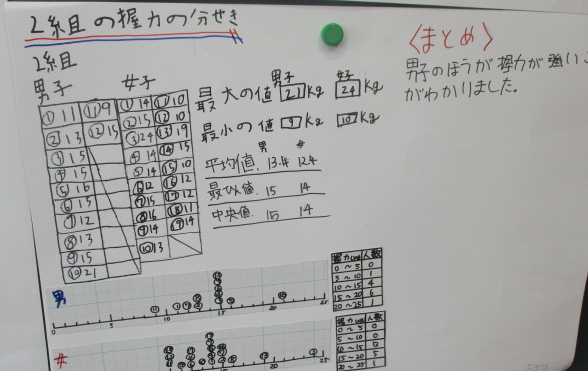 2組の握力の分せき
2組
男子 女子
①11 ⑪9
②13 ⑫15
③15
④15
⑤16
⑥15
⑦12
⑧13
⑨15
⑩21
①14 ⑪10
②15 ⑫10
③24 ⑬19
④14 ⑭15
⑤14 ⑮10
⑥12 ⑯12
⑦15 ⑰12
⑧16 ⑱11
⑨14 ⑲14
⑩13
男子 女子
最大の値 21kg 24kg
最小の値 9kg 10kg
男 女
平均値
最ひん値 15 14
中央値 15 14
〈まとめ〉
男子のほうが握力が強いこ
がわかりました。
男
0 5 10 15 20 25
握力(kg) 人数
0～5 0
5～10 1
10～15 4
15～20 6
20～25 1
女
握力(kg) 人数
0～5 0
5～10 0
10～15
15～20 5
20～25 1